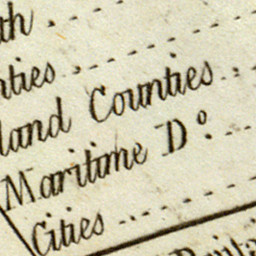 th
nties
land Counties
Maritime Do.
Cities